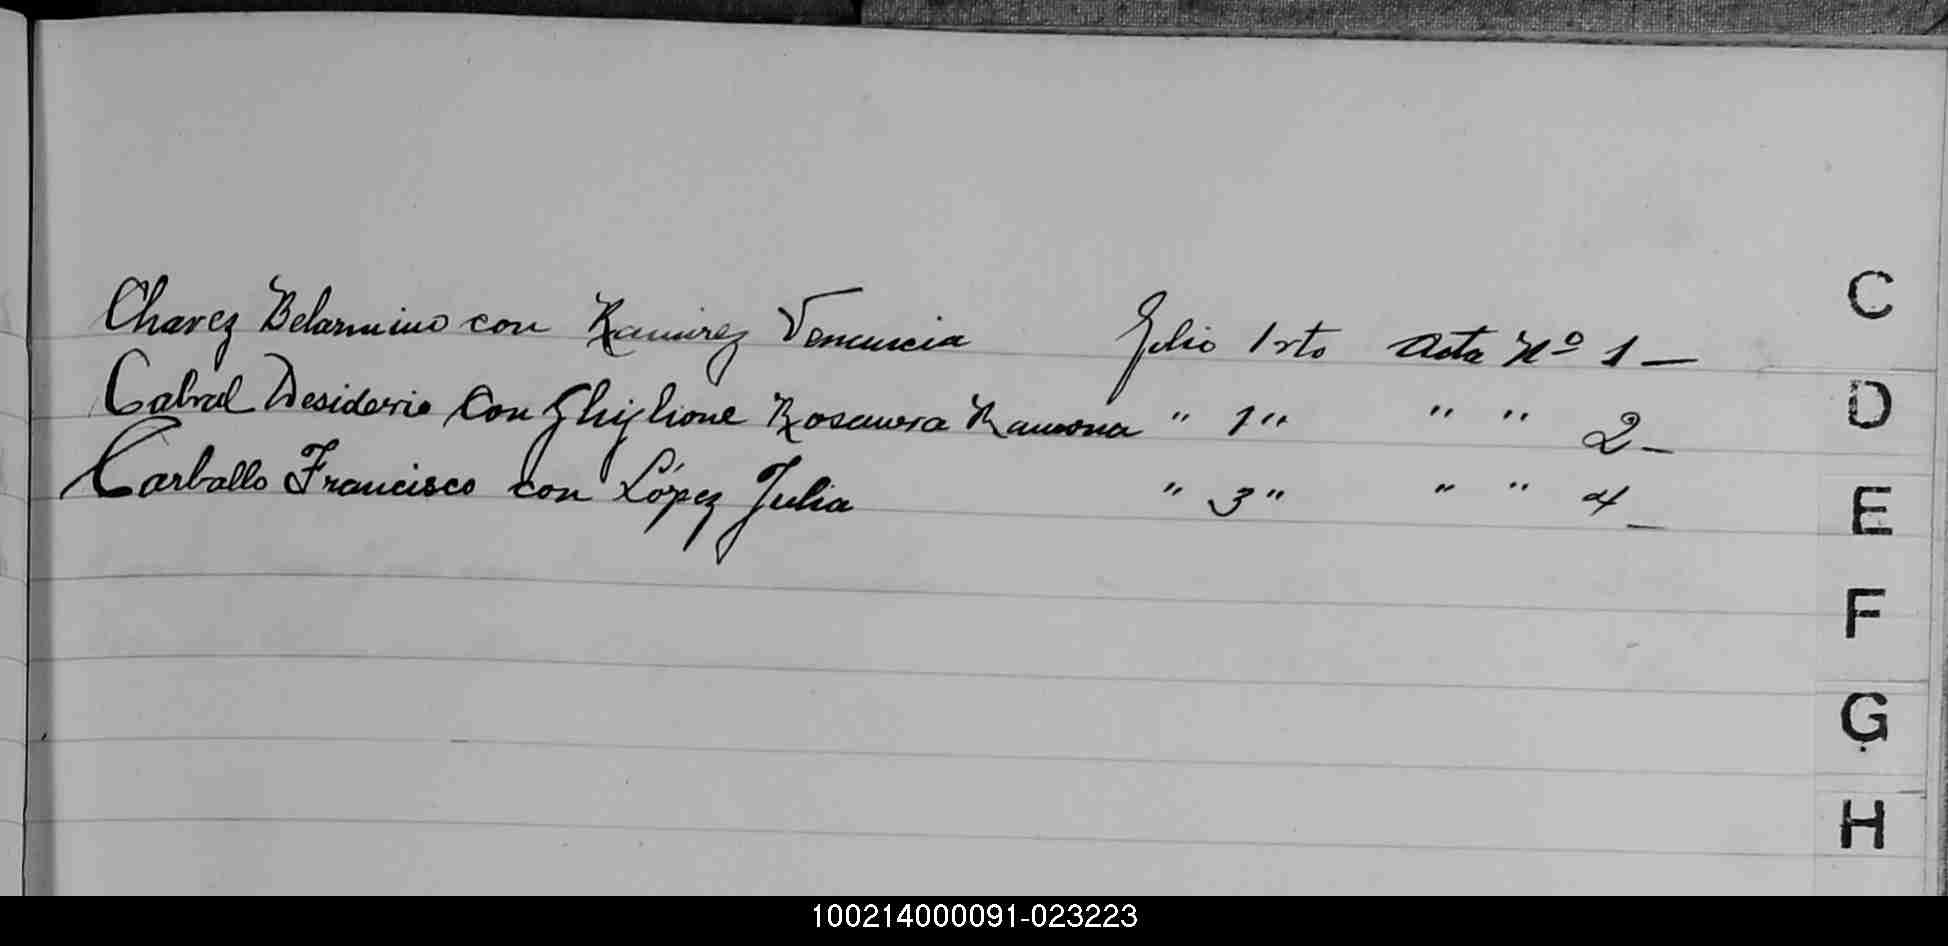 Chavez Belarmino con Ramirez Venancia Julio 1rto Acta Nº 1 —
Cabral Desiderio con Ghiglione Rosaura Ramona " 1 " " " 2 —
Carballo Francisco con López Julia " 3 " " " 4 —
C
D
E
F
G
H
100214000091-023223